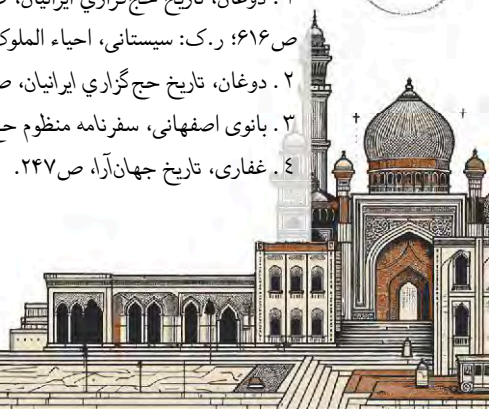 دوغان، تاریخ حج‌گزاري ایرانیان،
ص۶۱۶؛ ر.ک: سیستانی، احیاء الملوک
۲. دوغان، تاریخ حج‌گزاري ایرانیان، ص
۳. بانوی اصفهانی، سفرنامه منظوم حج
٤. غفاری، تاریخ جهان‌آرا، ص۲۴۷.